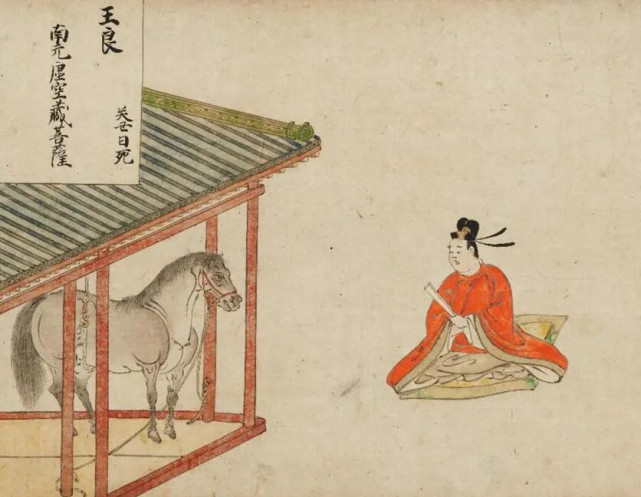 王良
日死
南无虚空藏菩薩